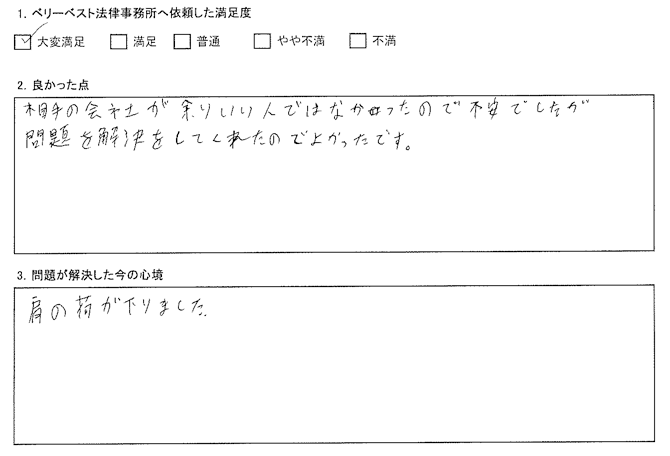 1. ベリーベスト法律事務所へ依頼した満足度
大変満足 満足 普通 やや不満 不満
2. 良かった点
相手の会社が余りいい人ではなかったので不安でしたが
問題を解決をしてくれたのでよかったです。
3. 問題が解決した今の心境
肩の荷が下りました.